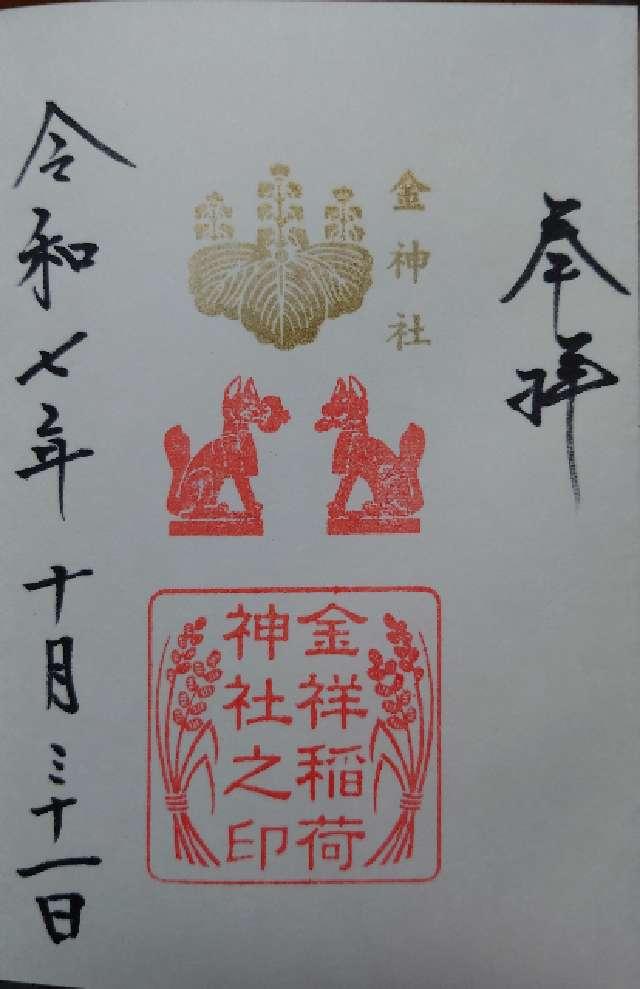 奉拝
金神社
金祥稲荷
神社之印
令和七年十月三十一日